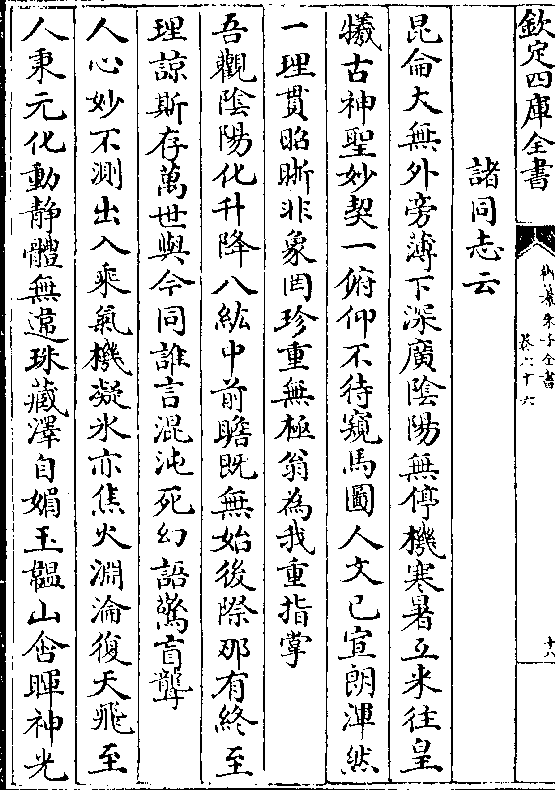 欽定四庫全書
御纂朱子全書
卷六十六
諸同志云
昆侖大無外旁薄下深廣陰陽無停機寒暑互来往皇
犧古神聖妙契一俯仰不待窺馬圖人文已宣朗渾然
一理貫昭晰非象罔珍重無極翁為我重指掌
吾觀陰陽化升降八紘中前瞻既無始後際那有終至
理諒斯存萬世與今同誰言混沌死幻語驚盲聾
人心妙不測出入乗氣機凝氷亦焦火淵淪復天飛至
人秉元化動静體無違珠藏澤自媚玉韞山含暉神光